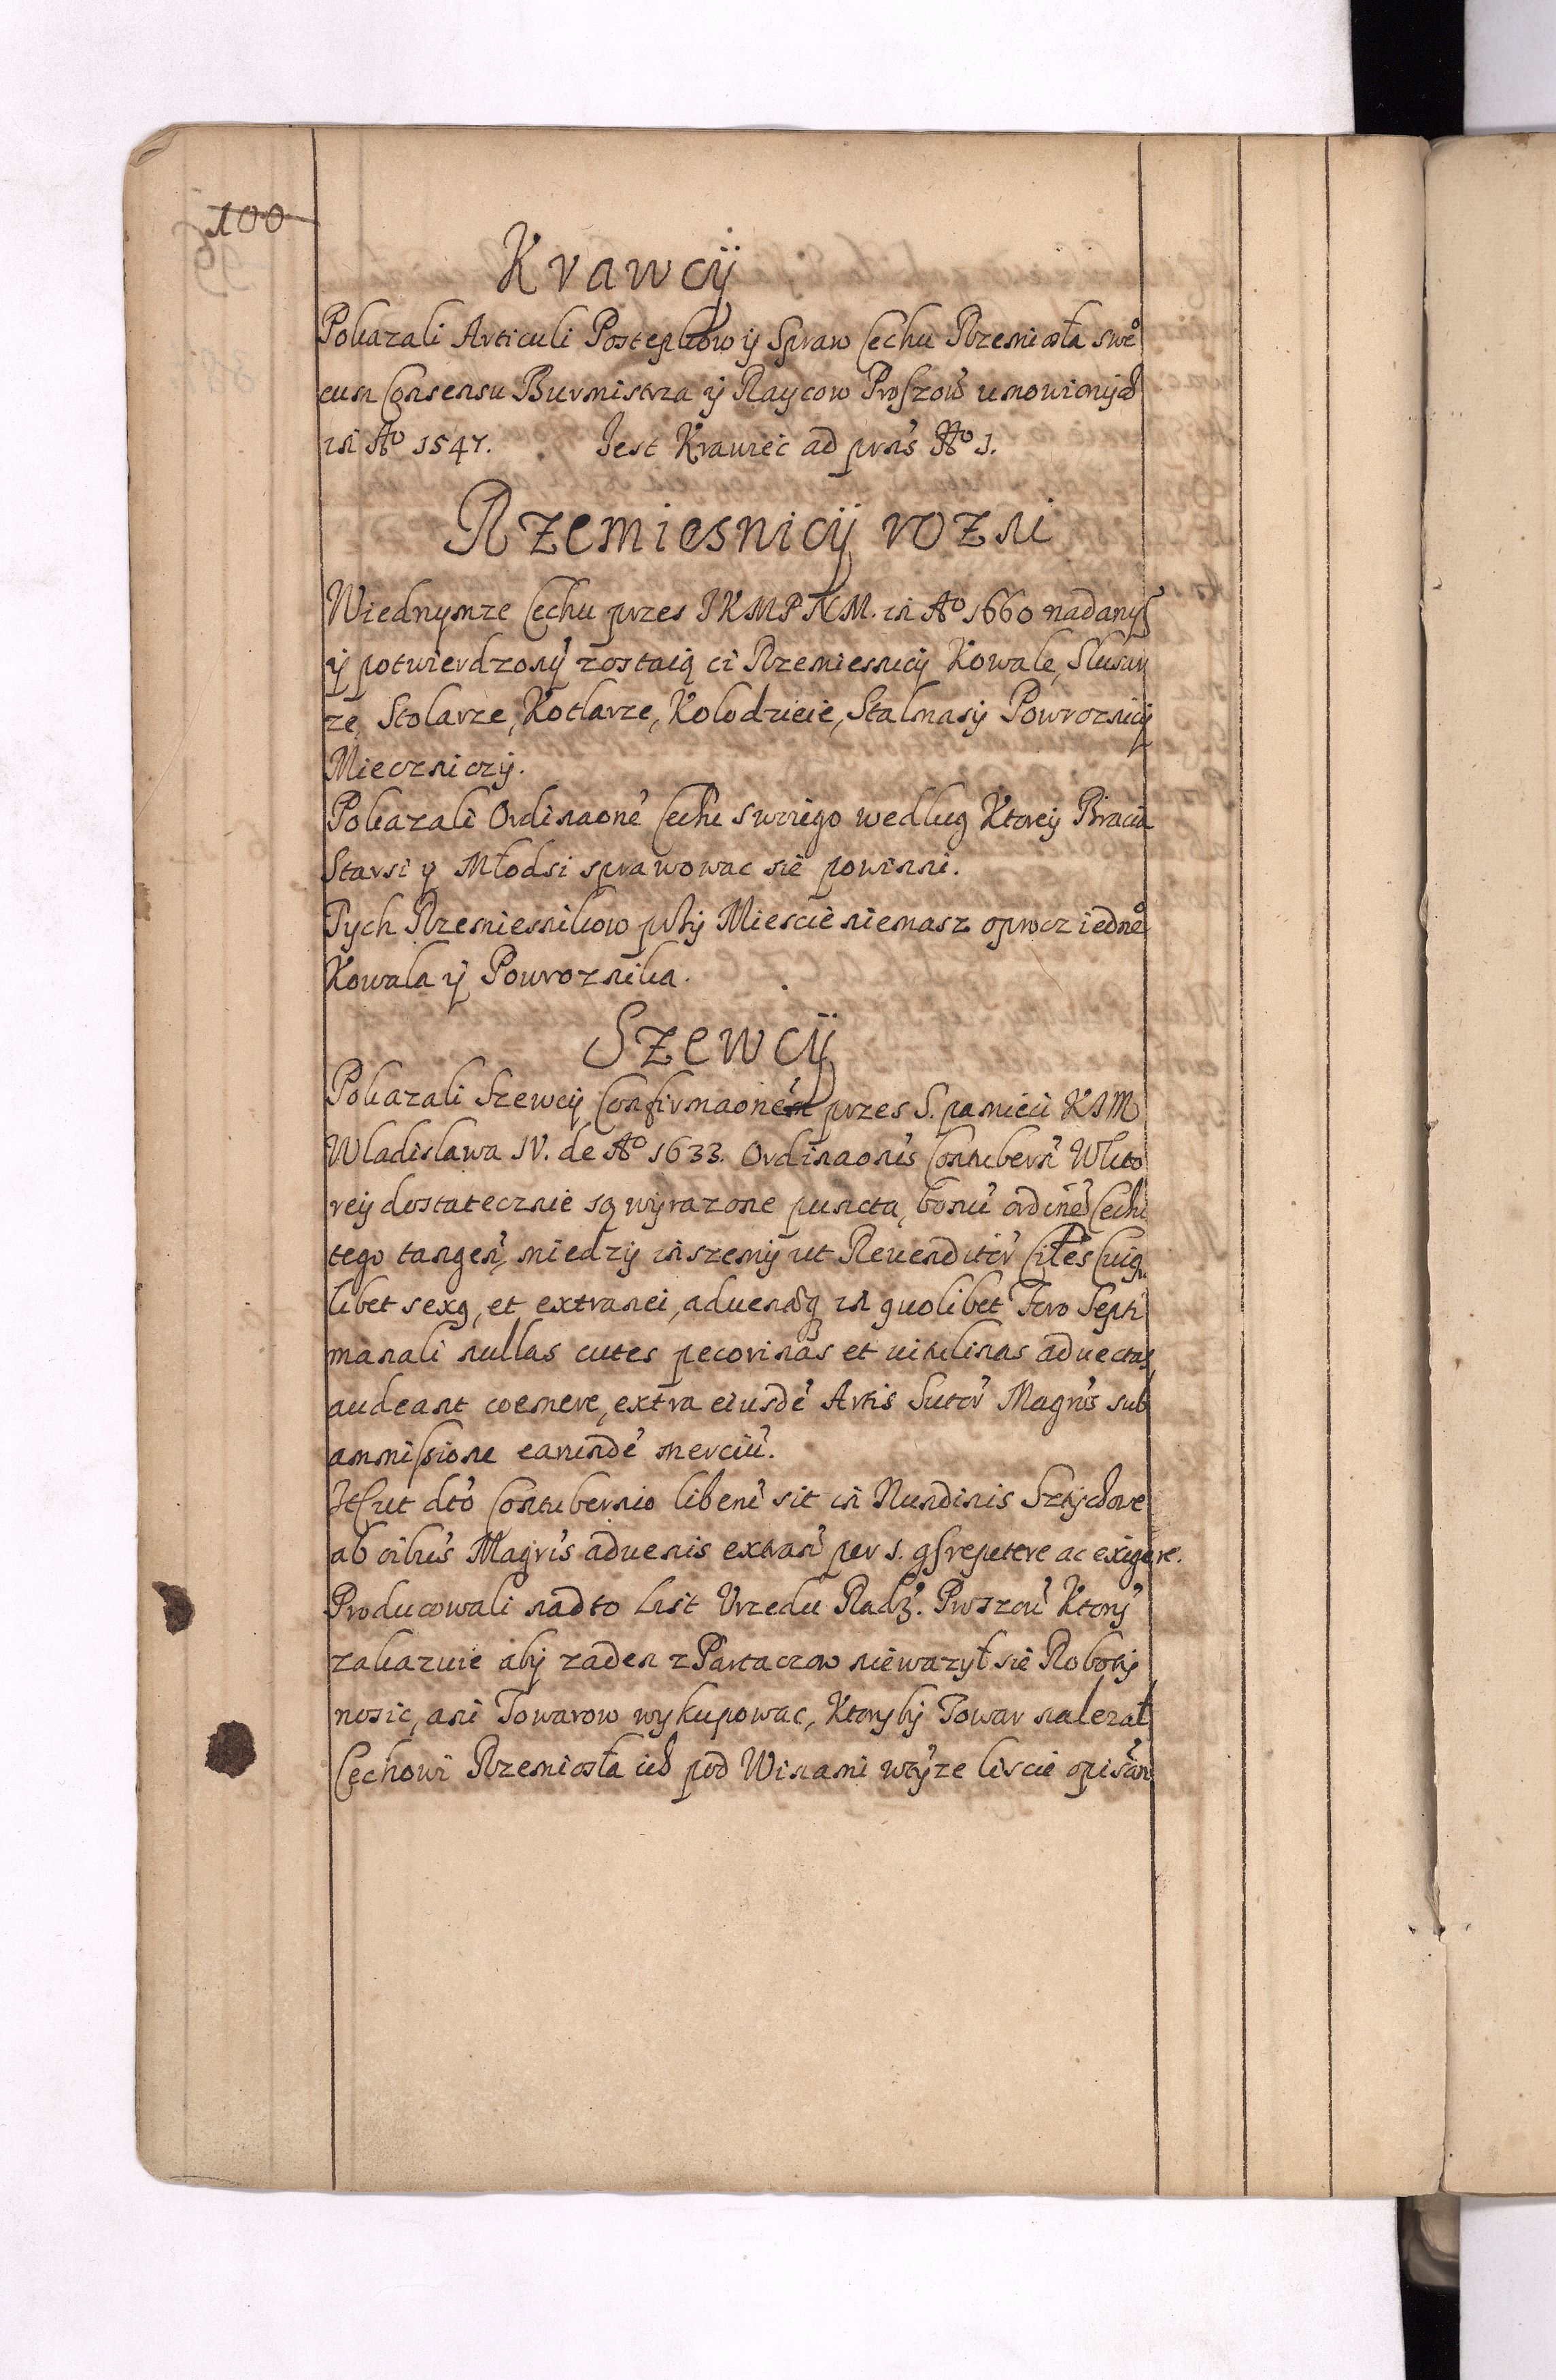 100
Krawcÿ
Pokazali Articuli Postępkow ÿ Spraw Cechu Rzemiosła sweº
cum Consensu Burmistrza ÿ Raycow Proszow umowionÿch
in Aº 1547. Jest Krawiec ad prns Nº 1.
Rzemiesnicÿ rozni
Wiednymze Cechu przes JKMPNM. in Aº 1660 nadanÿ
ÿ potwierdzonÿ zostaią ci Rzemiesnicÿ Kowale, Slusar
ze, Stolarze, Kotlarze, Kolodzieie, Stalmasÿ Powroznicÿ
Mieczniczÿ.
Pokazali Ordinaone Cechu swoiego wedlug Ktoreÿ Bracia
Starsi ÿ Młodsi sprawowac sie powinni.
Tych Rzemiesnikow Miescie niemasz oprocz iedneº
Kowala ÿ Powroznika.
Szewcÿ
Pokazali Szewcÿ Confirmaonem przes S. pamieci KJM
Wladislawa IV. de Aº 1633. Ordinaonis Contubern Wkto
reÿ dostatecznie są wÿrazone puncta, bonu ordine Cechu
tego tangen, miedzÿ inszemÿ ut Revenditor Ciles Cuig
libet sexq, et extranei, advenæq in quolibet Foro Septi
manali nullas cutes pecorinas et vitulinas advectas,
audeant coemere, extra eiusde Artis Sutor Magros sub
ammissione earunde merciu.
It ut dto Contubernio liberu sit in Nundinis Sztÿchowe
ab oibus Magris advenis extran per 1. gr repetere ac exigere.
Producowali nadto List Urzedu Radz. Proszow Ktorÿ
zakazuie abÿ zaden z Partaczow niewazÿł sie Robotÿ
nosic, ani Towarow wykupowac, Ktorÿbÿ Towar nalezał
Cechowi Rzemiosła ich pod Winami wtÿze liscie opisan